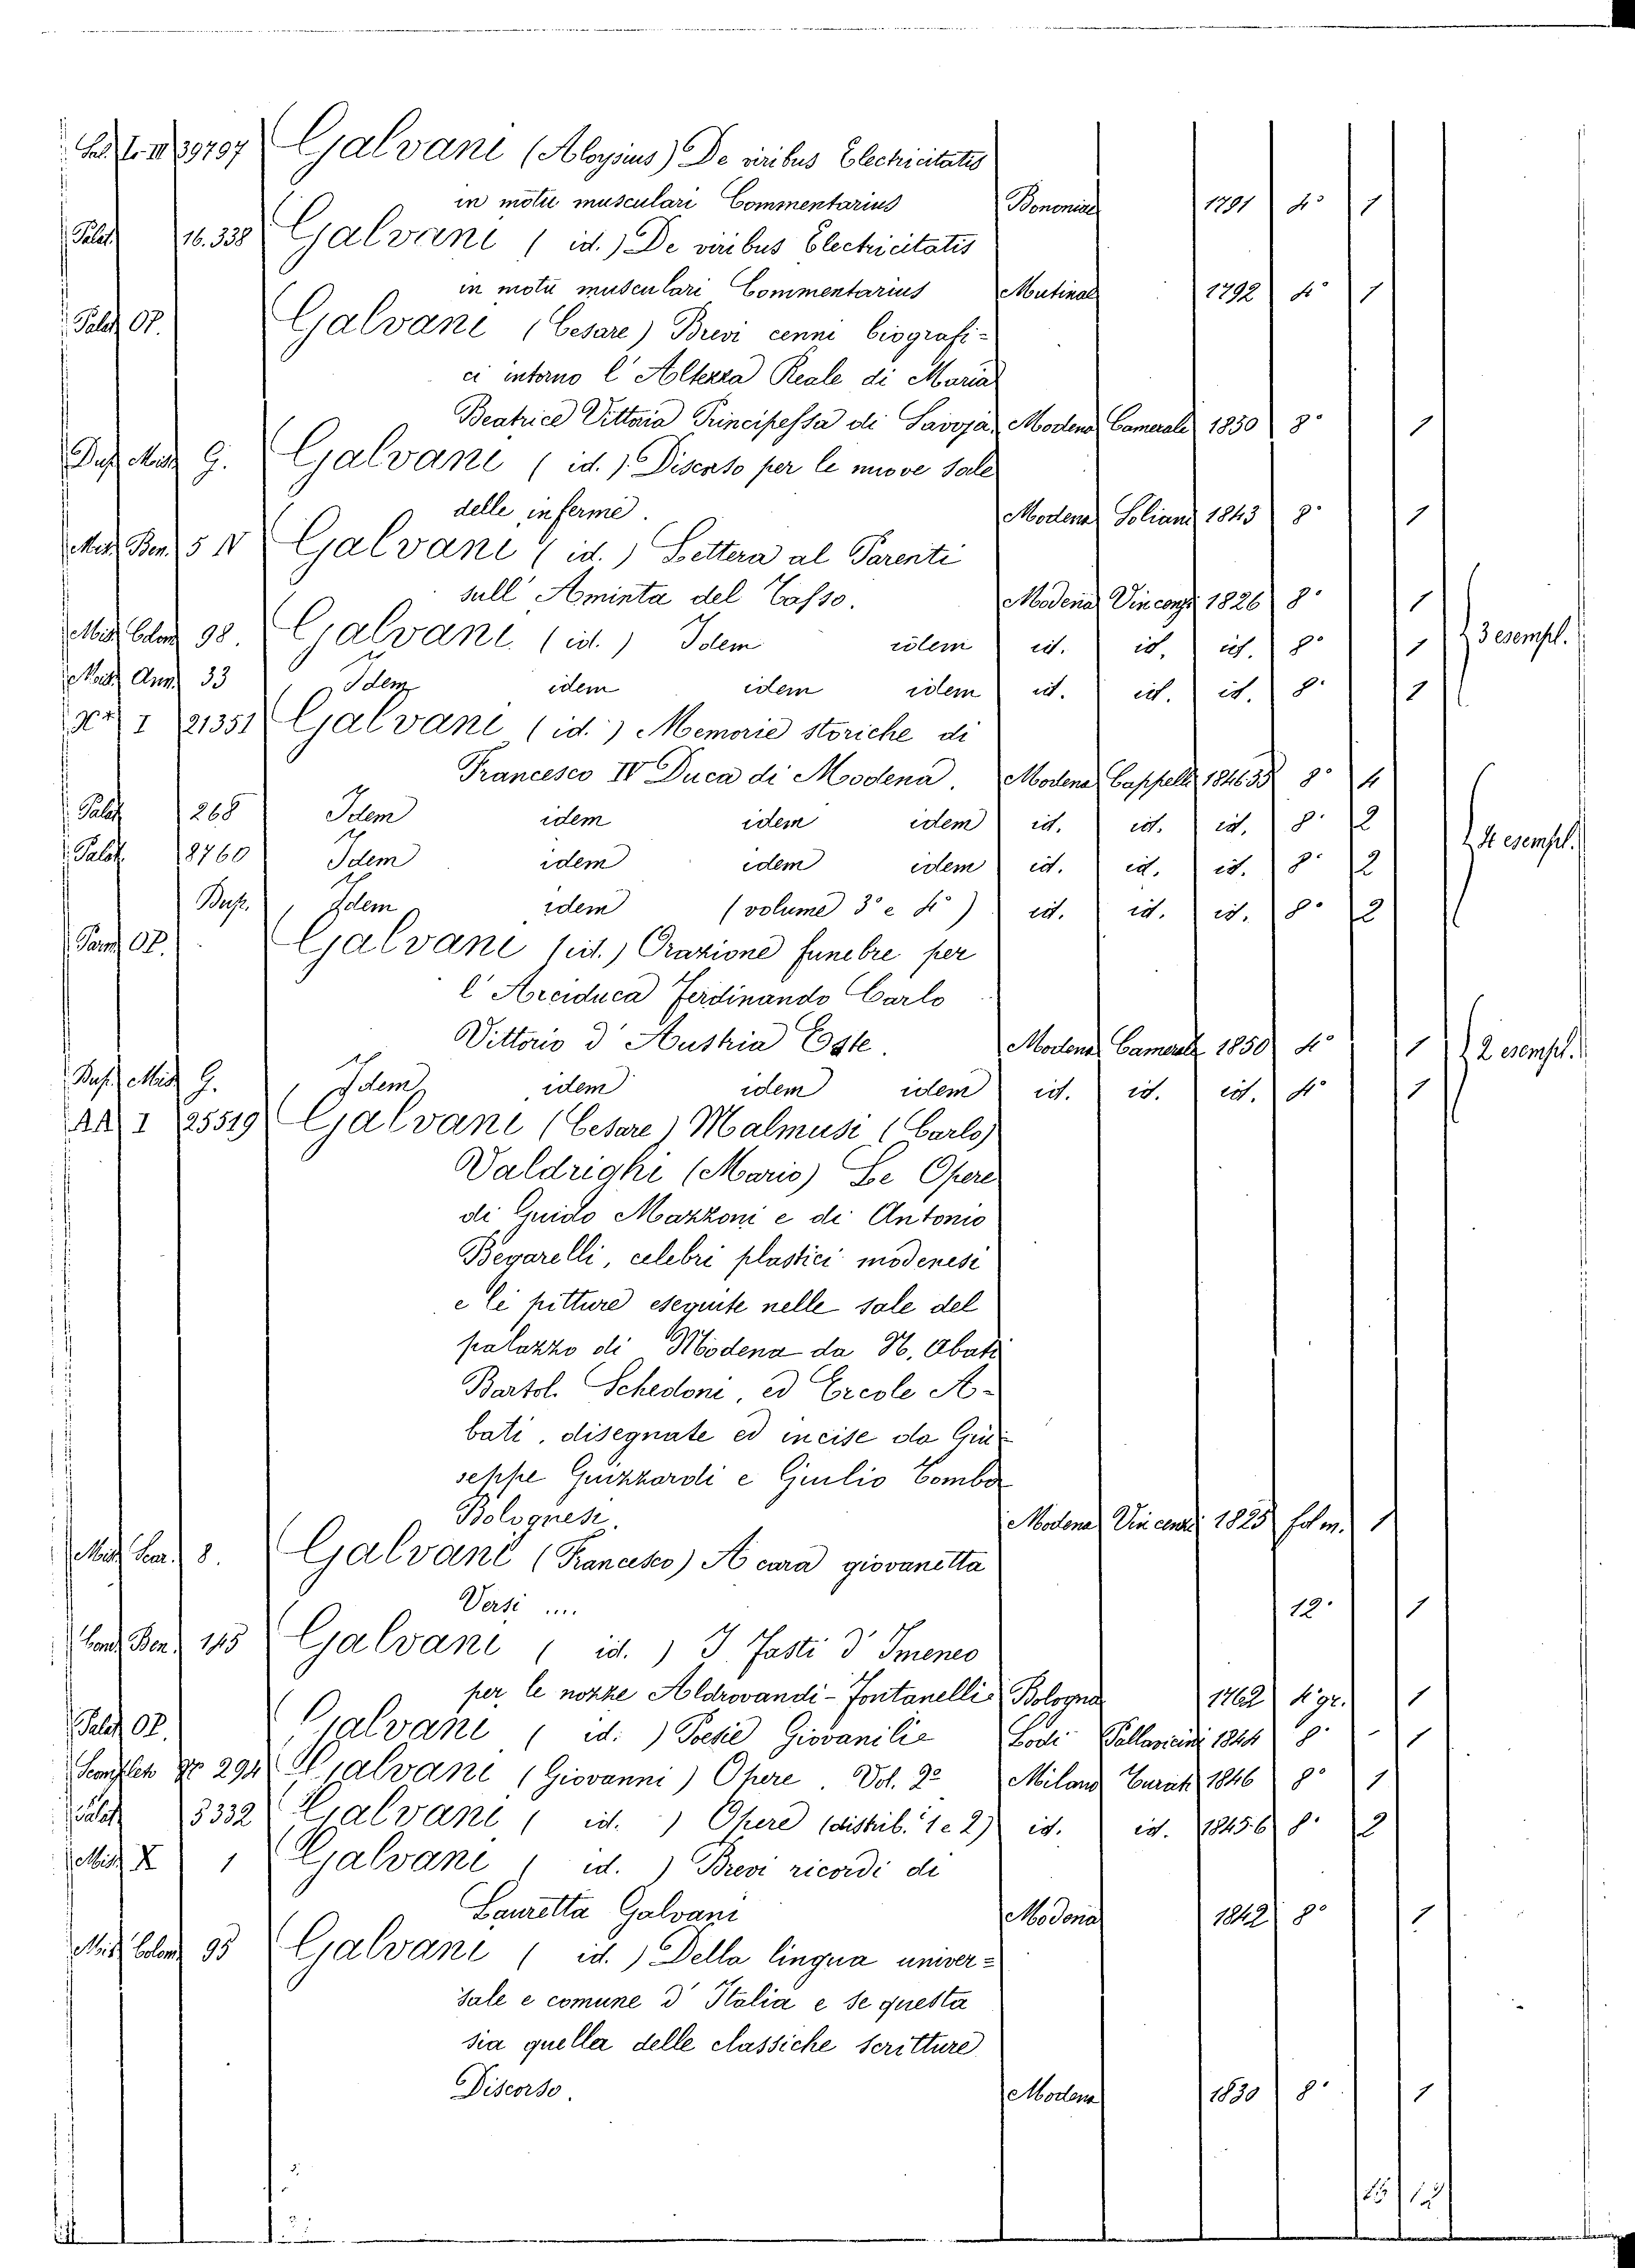 39797 Galvani (Aloysius) De viribus Electricitatis
in motu musculari Commentarius Bononiae 1791 4° 1
Palat. 16.338 Galvani (id.) De viribus Electricitatis
in motu musculari Commentarius Mutinae 1792 4° 1
Palat. OP. Galvani (Cesare) Brevi cenni biografi-
ci intorno l'Altezza Reale di Maria
Beatrice Vittoria Principessa di Savoja. Modena Camerale 1850 8° 1
G. Galvani (id.) Discorso per le nuove sale
delle inferme. Modena Soliani 1843 8° 1
Misc. Ben. 5 IV Galvani (id.) Lettera al Parenti
sull'Aminta del Tasso. Modena Vincenzi 1826 8° 1
Misc. 98. Galvani (id.) Idem idem id. id. id. 8° 1 3 esempl.
Misc. Ann. 33 Idem idem idem idem id. id. id. 8° 1
I 21351 Galvani (id.) Memorie storiche di
Francesco IV Duca di Modena. Modena Cappelli 1846 8° 4
Palat. 268 Idem idem idem idem id. id. id. 8° 2 4 esempl.
Palat. 8760 Idem idem idem idem id. id. id. 8° 2
Idem idem (volume 3° e 4°) id. id. id. 8° 2
OP. Galvani (id.) Orazione funebre per
l'Arciduca Ferdinando Carlo
Vittorio d'Austria Este. Modena Camerale 1850 4° 1 2 esempl.
Misc. G. Idem idem idem idem id. id. id. 4° 1
AA I 25519 Galvani (Cesare) Malmusi (Carlo)
Valdrighi (Mario) Le Opere
di Guido Mazzoni e di Antonio
Begarelli, celebri plastici modenesi
e le pitture eseguite nelle sale del
palazzo di Modena da N. Abati
Bartol. Schedoni, ed Ercole A-
bati, disegnate ed incise da Giu-
seppe Guizzardi e Giulio Tomba
Bolognesi. Modena Vincenzi 1823 fol m. 1
Misc. 8. Galvani (Francesco) A cara giovanetta
Versi .... 12° 1
Ben. 145 Galvani (id.) I Fasti d'Imeneo
per le nozze Aldrovandi-Fontanelli Bologna 1762 4° gr. 1
Palat. OP. Galvani (id.) Poesie Giovanilie Lodi Pallavicini 1844 8° 1
294 Galvani (Giovanni) Opere. Vol. 2° Milano Turati 1846 8° 1
Palat. 5332 Galvani (id.) Opere (distrib. 1 e 2) id. id. 1845 6 8° 2
Misc. X 1 Galvani (id.) Brevi ricordi di
Lauretta Galvani Modena 1842 8° 1
Misc. 95 Galvani (id.) Della lingua univer-
sale e comune d'Italia e se questa
sia quella delle classiche scritture
Discorso. Modena 1830 8° 1